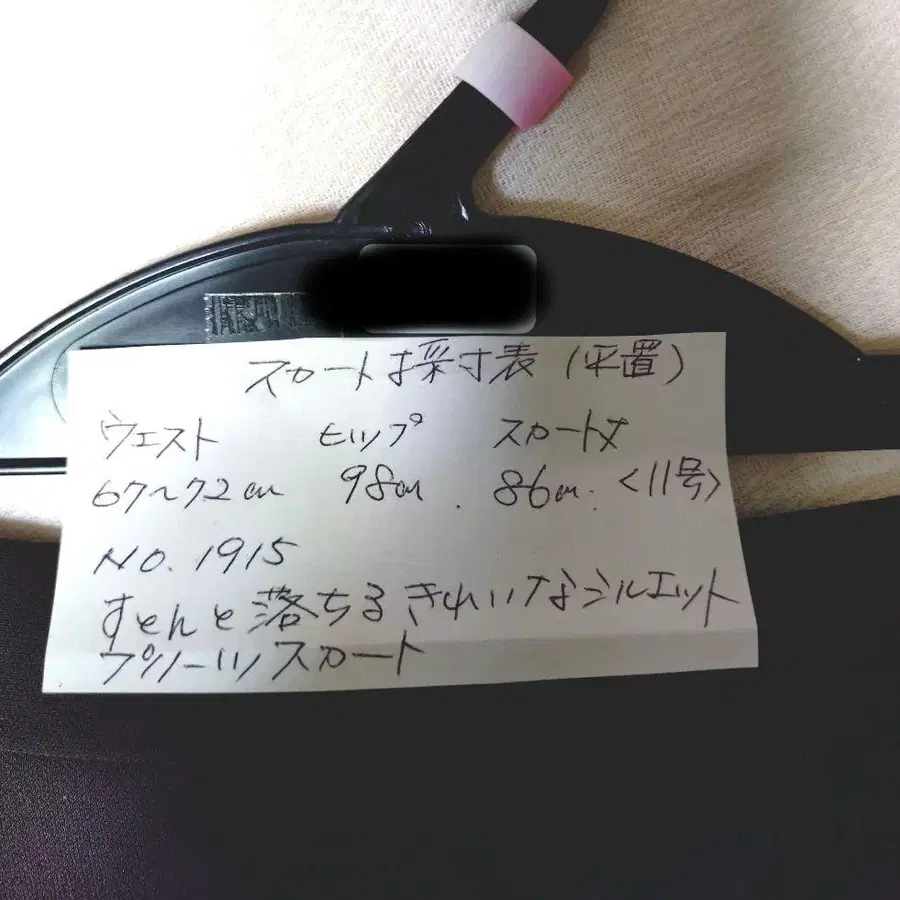 スカート採寸表(平置)
ウェスト ヒップ スカート丈
67~72cm 98cm. 86cm. <11号>
NO. 1915
すとんと落ちるきれいなシルエット
プリーツスカート